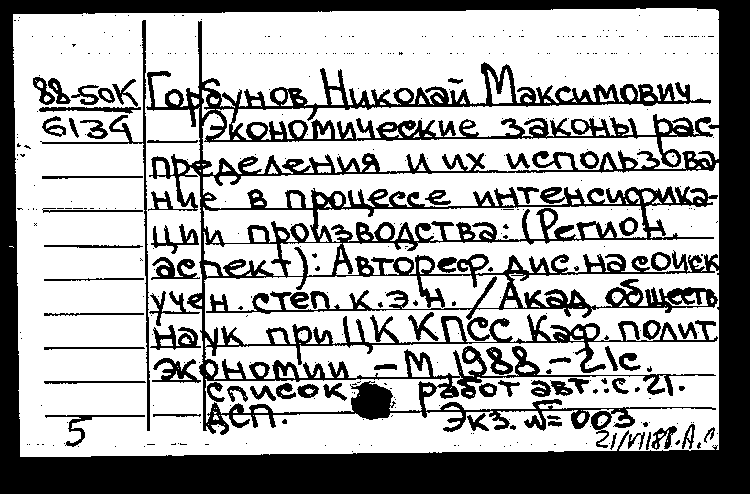 88-50К Горбунов, Николай Максимович
6134 Экономические законы рас-
пределения и их использова-
ние в процессе интенсифика-
ции производства: (Регион.
аспект): Автореф. дис. на соиск
учен. степ. к.э.н. / Акад. обществ
наук при ЦК КПСС. Каф. полит
экономии. – М., 1988. – 21с.
Список работ авт.: с. 21.
ДСП. Экз. № 003.
5